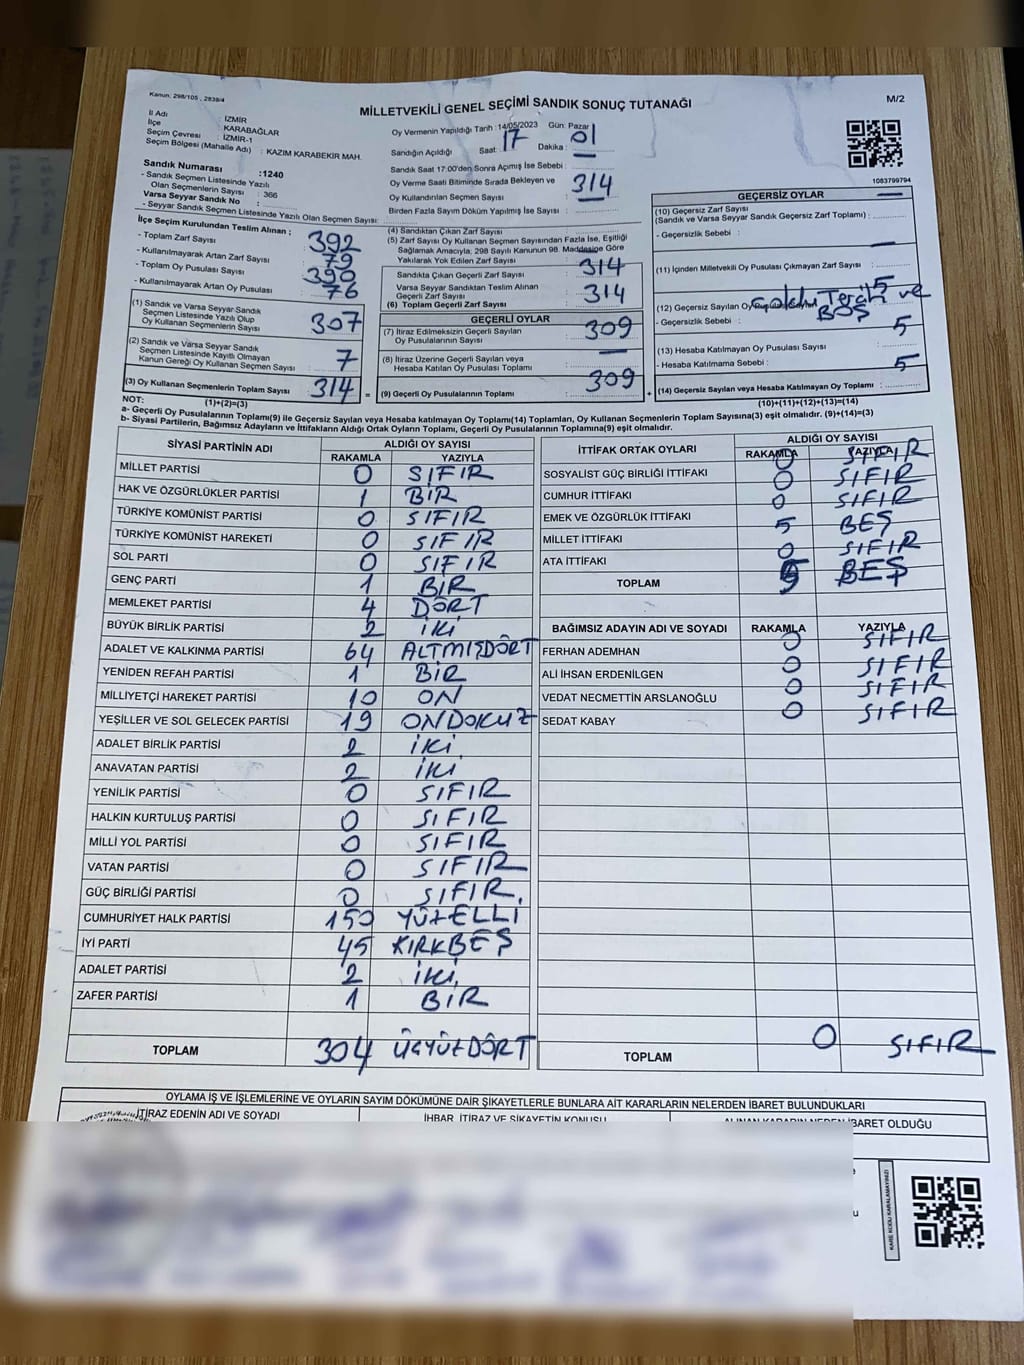 Kanun: 298/105 , 2839/4
MİLLETVEKİLİ GENEL SEÇİMİ SANDIK SONUÇ TUTANAĞI
M/2
İl Adı : İZMİR
İlçe : KARABAĞLAR
Seçim Çevresi : İZMİR-1
Seçim Bölgesi (Mahalle Adı) : KAZIM KARABEKİR MAH.
Sandık Numarası :1240
- Sandık Seçmen Listesinde Yazılı
Olan Seçmenlerin Sayısı : 366
Varsa Seyyar Sandık No :
- Seyyar Sandık Seçmen Listesinde Yazılı Olan Seçmen Sayısı:
İlçe Seçim Kurulundan Teslim Alınan ;
- Toplam Zarf Sayısı : 392
- Kullanılmayarak Artan Zarf Sayısı : 79
- Toplam Oy Pusulası Sayısı : 390
- Kullanılmayarak Artan Oy Pusulası : 76
(1) Sandık ve Varsa Seyyar Sandık
Seçmen Listesinde Yazılı Olup
Oy Kullanan Seçmenlerin Sayısı 307
(2) Sandık ve Varsa Seyyar Sandık
Seçmen Listesinde Kayıtlı Olmayan
Kanun Gereği Oy Kullanan Seçmen Sayısı 7
(3) Oy Kullanan Seçmenlerin Toplam Sayısı 314
(1)+(2)=(3)
Oy Vermenin Yapıldığı Tarih :14/05/2023 Gün: Pazar
Sandığın Açıldığı Saat : 17 Dakika : 01
Sandık Saat 17:00'den Sonra Açımış İse Sebebi :
Oy Verme Saati Bitiminde Sırada Bekleyen ve
Oy Kullandırılan Seçmen Sayısı : 314
Birden Fazla Sayım Döküm Yapılmış İse Sayısı :
(4) Sandıktan Çıkan Zarf Sayısı :
(5) Zarf Sayısı Oy Kullanan Seçmen Sayısından Fazla İse, Eşitliği
Sağlamak Amacıyla; 298 Sayılı Kanunun 98. Maddesine Göre
Yakılarak Yok Edilen Zarf Sayısı :
Sandıkta Çıkan Geçerli Zarf Sayısı : 314
Varsa Seyyar Sandıktan Teslim Alınan
Geçerli Zarf Sayısı :
(6) Toplam Geçerli Zarf Sayısı : 314
GEÇERLİ OYLAR
(7) İtiraz Edilmeksizin Geçerli Sayılan
Oy Pusulalarının Sayısı : 309
(8) İtiraz Üzerine Geçerli Sayılan veya
Hesaba Katılan Oy Pusulası Toplamı : —
(9) Geçerli Oy Pusulalarının Toplamı : 309
1083799794
GEÇERSİZ OYLAR
(10) Geçersiz Zarf Sayısı
(Sandık ve Varsa Seyyar Sandık Geçersiz Zarf Toplamı) :
- Geçersizlik Sebebi :
(11) İçinden Milletvekili Oy Pusulası Çıkmayan Zarf Sayısı :
(12) Geçersiz Sayılan Oy Pusulası Sayısı : 5
- Geçersizlik Sebebi : Çoklu Tercih ve
BOŞ
(13) Hesaba Katılmayan Oy Pusulası Sayısı : 5
- Hesaba Katılmama Sebebi :
(14) Geçersiz Sayılan veya Hesaba Katılmayan Oy Toplamı : 5
(10)+(11)+(12)+(13)=(14)
NOT:
a- Geçerli Oy Pusulalarının Toplamı(9) ile Geçersiz Sayılan veya Hesaba katılmayan Oy Toplamı(14) Toplamları, Oy Kullanan Seçmenlerin Toplam Sayısına(3) eşit olmalıdır. (9)+(14)=(3)
b- Siyasi Partilerin, Bağımsız Adayların ve İttifakların Aldığı Ortak Oyların Toplamı, Geçerli Oy Pusulalarının Toplamına(9) eşit olmalıdır.
SİYASİ PARTİNİN ADI ALDIĞI OY SAYISI
RAKAMLA YAZIYLA
MİLLET PARTİSİ 0 SIFIR
HAK VE ÖZGÜRLÜKLER PARTİSİ 1 BİR
TÜRKİYE KOMÜNİST PARTİSİ 0 SIFIR
TÜRKİYE KOMÜNİST HAREKETİ 0 SIFIR
SOL PARTİ 0 SIFIR
GENÇ PARTİ 1 BİR
MEMLEKET PARTİSİ 4 DÖRT
BÜYÜK BİRLİK PARTİSİ 2 İKİ
ADALET VE KALKINMA PARTİSİ 64 ALTMIŞDÖRT
YENİDEN REFAH PARTİSİ 1 BİR
MİLLİYETÇİ HAREKET PARTİSİ 10 ON
YEŞİLLER VE SOL GELECEK PARTİSİ 19 ONDOKUZ
ADALET BİRLİK PARTİSİ 2 İKİ
ANAVATAN PARTİSİ 2 İKİ
YENİLİK PARTİSİ 0 SIFIR
HALKIN KURTULUŞ PARTİSİ 0 SIFIR
MİLLİ YOL PARTİSİ 0 SIFIR
VATAN PARTİSİ 0 SIFIR
GÜÇ BİRLİĞİ PARTİSİ 0 SIFIR
CUMHURİYET HALK PARTİSİ 150 YÜZELLİ
İYİ PARTİ 45 KIRKBEŞ
ADALET PARTİSİ 2 İKİ
ZAFER PARTİSİ 1 BİR
TOPLAM 304 ÜÇYÜZDÖRT
İTTİFAK ORTAK OYLARI ALDIĞI OY SAYISI
RAKAMLA YAZIYLA
SOSYALİST GÜÇ BİRLİĞİ İTTİFAKI 0 SIFIR
CUMHUR İTTİFAKI 0 SIFIR
EMEK VE ÖZGÜRLÜK İTTİFAKI 0 SIFIR
MİLLET İTTİFAKI 5 BEŞ
ATA İTTİFAKI 0 SIFIR
TOPLAM 5 BEŞ
BAĞIMSIZ ADAYIN ADI VE SOYADI RAKAMLA YAZIYLA
FERHAN ADEMHAN 0 SIFIR
ALİ İHSAN ERDENİLGEN 0 SIFIR
VEDAT NECMETTİN ARSLANOĞLU 0 SIFIR
SEDAT KABAY 0 SIFIR
TOPLAM 0 SIFIR
OYLAMA İŞ VE İŞLEMLERİNE VE OYLARIN SAYIM DÖKÜMÜNE DAİR ŞİKAYETLERLE BUNLARA AİT KARARLARIN NELERDEN İBARET BULUNDUKLARI
İTİRAZ EDENİN ADI VE SOYADI İHBAR, İTİRAZ VE ŞİKAYETİN KONUSU ALINAN KARARIN NEDEN İBARET OLDUĞU
KARE KODU KARALAMAYINIZ!